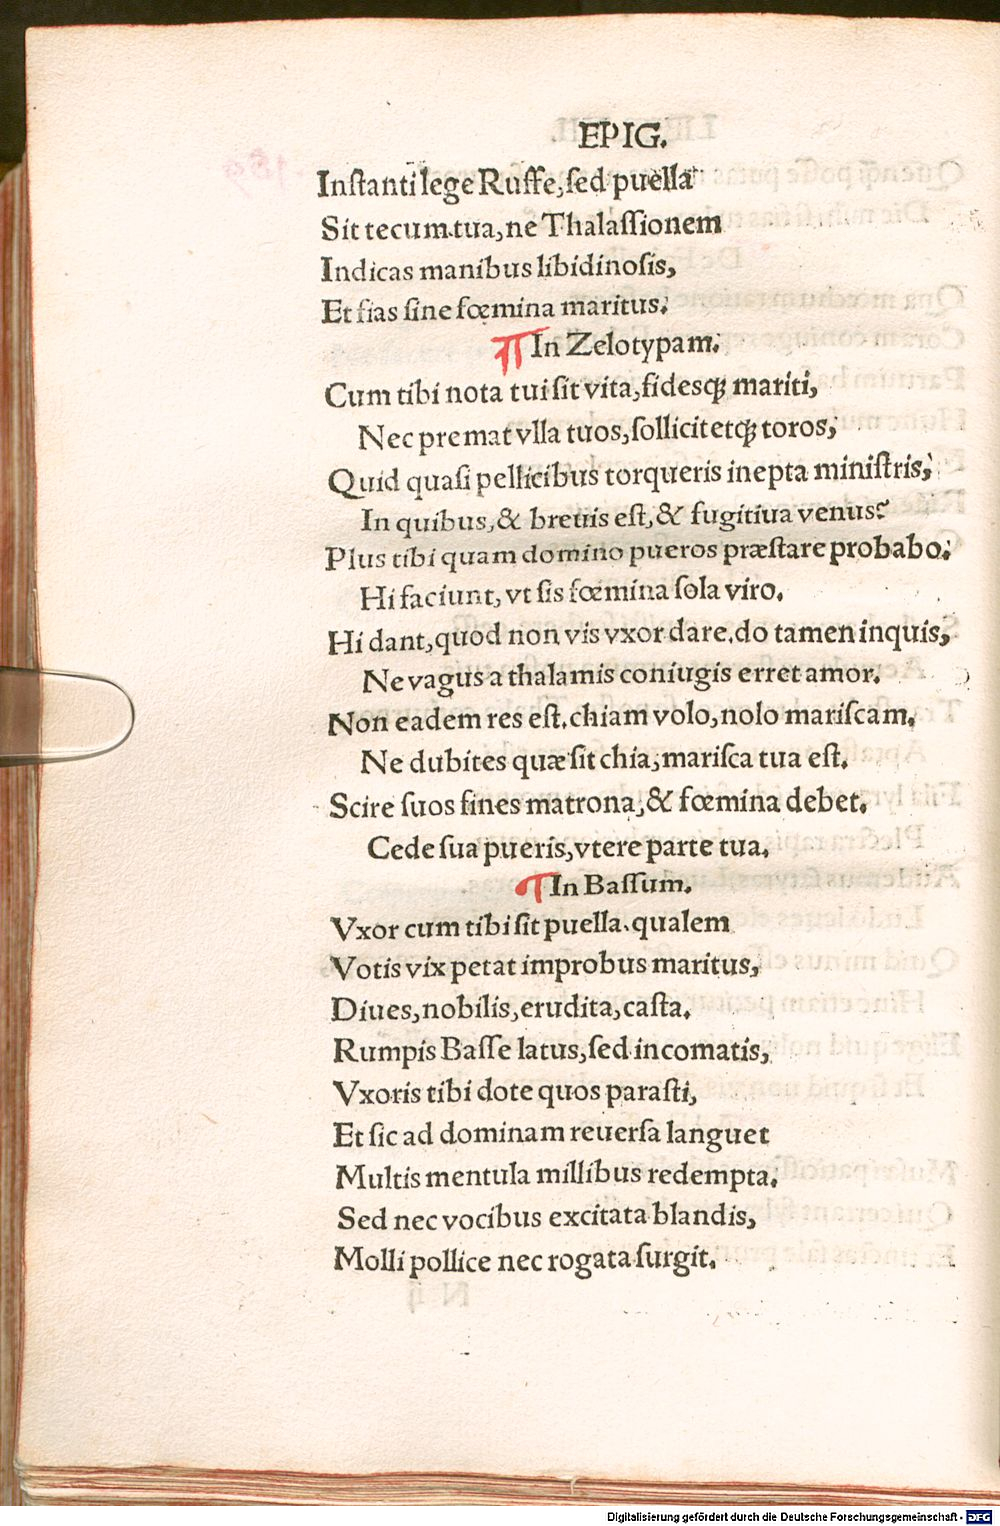 EPIG.
Instanti lege Ruffe, sed puella
Sit tecum tua, ne Thalassionem
Indicas manibus libidinosis,
Et fias sine fœmina maritus.
¶ In Zelotypam.
Cum tibi nota tui sit vita, fidesqꝫ mariti,
Nec premat vlla tuos, sollicitetqꝫ toros,
Quid quasi pellicibus torqueris inepta ministris,
In quibus, & breuis est, & fugitiua venus?
Plus tibi quam domino pueros præstare probabo.
Hi faciunt, vt sis fœmina sola viro.
Hi dant, quod non vis vxor dare. do tamen inquis,
Ne vagus a thalamis coniugis erret amor.
Non eadem res est. chiam volo, nolo mariscam.
Ne dubites quæ sit chia, marisca tua est.
Scire suos fines matrona, & fœmina debet.
Cede sua pueris, vtere parte tua.
¶ In Bassum.
Vxor cum tibi sit puella. qualem
Votis vix petat improbus maritus,
Diues, nobilis, erudita, casta.
Rumpis Basse latus, sed in comatis,
Vxoris tibi dote quos parasti,
Et sic ad dominam reuersa languet
Multis mentula millibus redempta.
Sed nec vocibus excitata blandis,
Molli pollice nec rogata surgit.
Digitalisierung gefördert durch die Deutsche Forschungsgemeinschaft - DFG